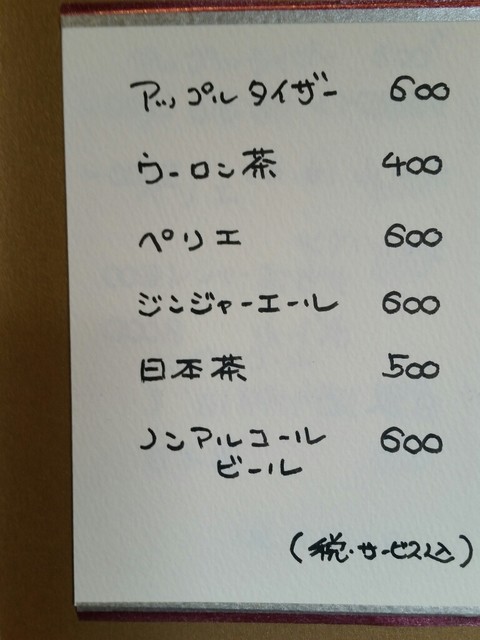 アップルタイザー 600
ウーロン茶 400
ペリエ 600
ジンジャーエール 600
日本茶 500
ノンアルコール 600
ビール
(税・サービス込)